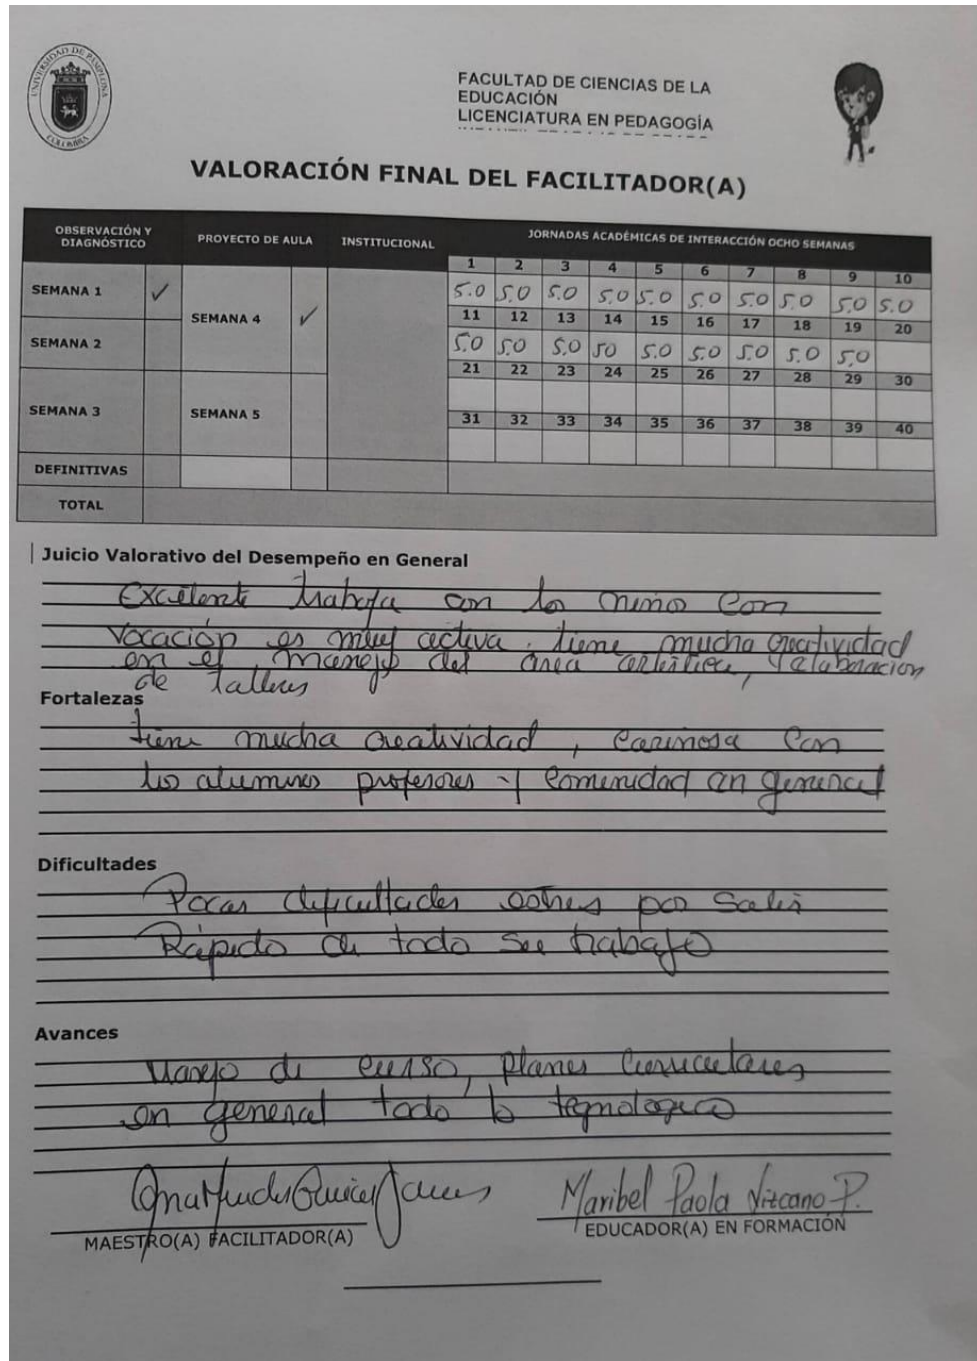 UNIVERSIDAD DE PAMPLONA
COLOMBIA
FACULTAD DE CIENCIAS DE LA
EDUCACIÓN
LICENCIATURA EN PEDAGOGÍA
VALORACIÓN FINAL DEL FACILITADOR(A)
OBSERVACIÓN Y DIAGNÓSTICO PROYECTO DE AULA INSTITUCIONAL JORNADAS ACADÉMICAS DE INTERACCIÓN OCHO SEMANAS
1 2 3 4 5 6 7 8 9 10
SEMANA 1 ✓ 5.0 5.0 5.0 5.0 5.0 5.0 5.0 5.0 5.0 5.0
SEMANA 4 ✓ 11 12 13 14 15 16 17 18 19 20
SEMANA 2 5.0 5.0 5.0 50 5.0 5.0 5.0 5.0 5.0
21 22 23 24 25 26 27 28 29 30
SEMANA 3 SEMANA 5
31 32 33 34 35 36 37 38 39 40
DEFINITIVAS
TOTAL
Juicio Valorativo del Desempeño en General
Excelente trabaja con los niños con
vocación es muy activa. tiene mucha creatividad
en el manejo del área artística, y elaboración
de talleres
Fortalezas
tiene mucha creatividad, cariñosa con
los alumnos profesores y comunidad en general
Dificultades
Pocas dificultades estres por salir
Rápido de todo su trabajo
Avances
Manejo de curso, planes curriculares
en general todo lo tegnologico
Maribel Paola Vizcano P.
MAESTRO(A) FACILITADOR(A) EDUCADOR(A) EN FORMACIÓN